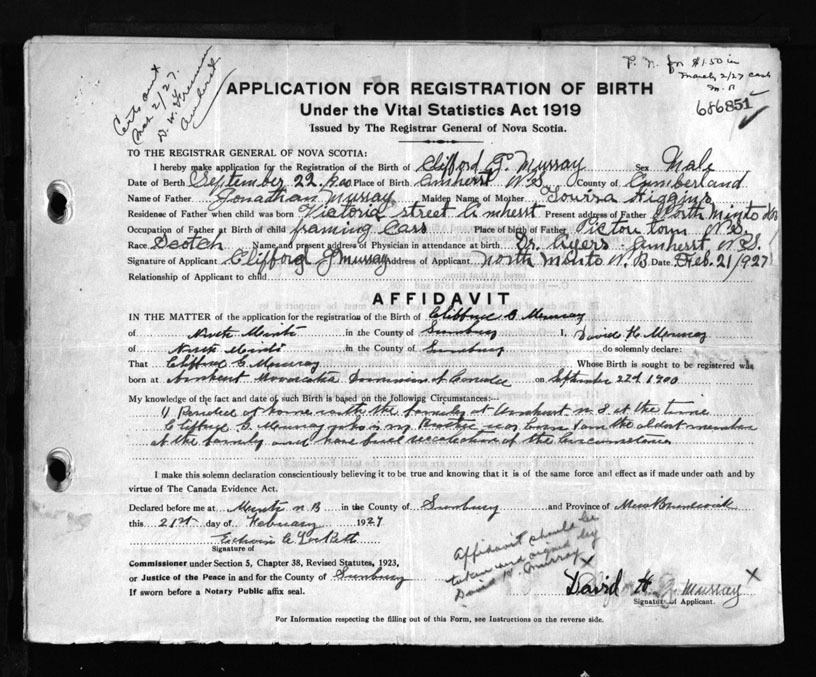 Certs out
Mar 2/27.
D. W.
Amherst
P. N. for $1.50 in
March 2/27 cash
M. R
686851
APPLICATION FOR REGISTRATION OF BIRTH
Under the Vital Statistics Act 1919
Issued by The Registrar General of Nova Scotia.
TO THE REGISTRAR GENERAL OF NOVA SCOTIA:
I hereby make application for the Registration of the Birth of Clifford G. Murray Sex Male
Date of Birth September 22, 1900 Place of Birth Amherst N S County of Cumberland
Name of Father Jonathan Murray Maiden Name of Mother Higgins
Residense of Father when child was born Victoria street Amherst Present address of Father North Minto
Occupation of Father at Birth of child framing Cars Place of birth of Father Pictou town N.S.
Race Scotch Name and present address of Physician in attendance at birth Dr. Ayers Amherst N.S.
Signature of Applicant Clifford G Murray Address of Applicant North Minto N. B Date Feb. 21/1927
Relationship of Applicant to child
AFFIDAVIT
IN THE MATTER of the application for the registration of the Birth of Clifford G Murray
of North Minto in the County of Sunbury I, David H. Murray
of North Minto in the County of Sunbury do solemnly declare:
That Clifford G Murray Whose Birth is sought to be registered was
born at Amherst Nova Scotia Dominion of Canada on September 22d 1900
My knowledge of the fact and date of such Birth is based on the following Circumstances:—
I Resided at home with the family at Amherst N S. at the time
Clifford G. Murray who is my Brother was born I am the oldest member
of the family and have full recollection of the Circumstances
I make this solemn declaration conscientiously believing it to be true and knowing that it is of the same force and effect as if made under oath and by
virtue of The Canada Evidence Act.
Declared before me at Minto N B in the County of Sunbury and Province of New Brunswick
this 21st day of February 1927
Signature of
Commissioner under Section 5, Chapter 38, Revised Statutes, 1923,
or Justice of the Peace in and for the County of Sunbury
If sworn before a Notary Public affix seal.
Affidavit should be
taken and signed by
David H. Murray X
David H. Murray X
Signature of Applicant.
For Information respecting the filling out of this Form, see Instructions on the reverse side.